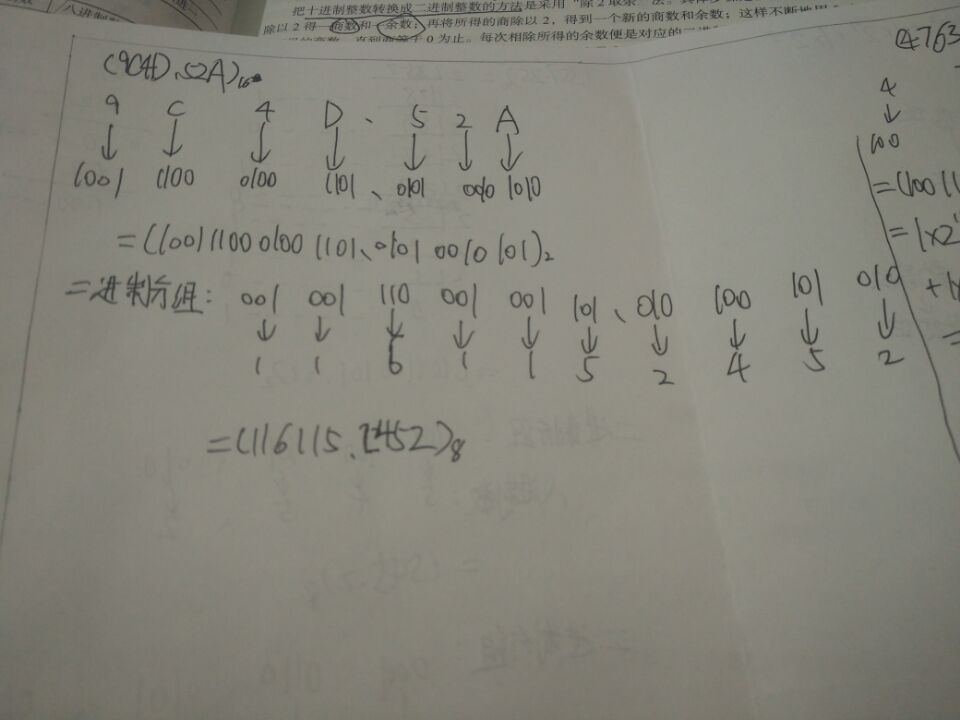 八进制数
把十进制整数转换成二进制整数的方法是采用"除2取余"法。
除以2得一商数和一余数；再将所得的商除以2，得到一个新的商数和余数；这样不断地用
直到商等于0为止。每次相除所得的余数便是对应的二进
(9C4D、52A)₁₆
9 C 4 D 、 5 2 A
↓ ↓ ↓ ↓ ↓ ↓ ↓
1001 1100 0100 1101、0101 0010 1010
=(1001 1100 0100 1101、0101 0010 101)₂
二进制分组: 001 001 110 001 001 101、010 100 101 010
↓ ↓ ↓ ↓ ↓ ↓ ↓ ↓ ↓ ↓
1 1 6 1 1 5 2 4 5 2
=(116115.2452)₈
④763
4
↓
100
=(100 11
=1×2
+1×
=